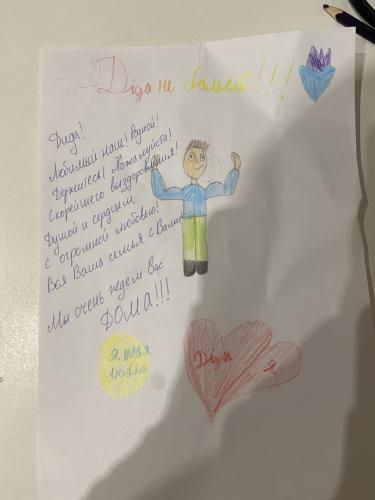 Діда не болей!!!
Дида!
Любимый наш! Родной!
Держитесь! Пожалуйста!
Скорейшего выздоровления!
Душой и сердцем,
с огромной любовью!
Вся Ваша семья с Вами
Мы очень ждем Вас
ДОМА!!!
Я тебя
люблю
Діда и я